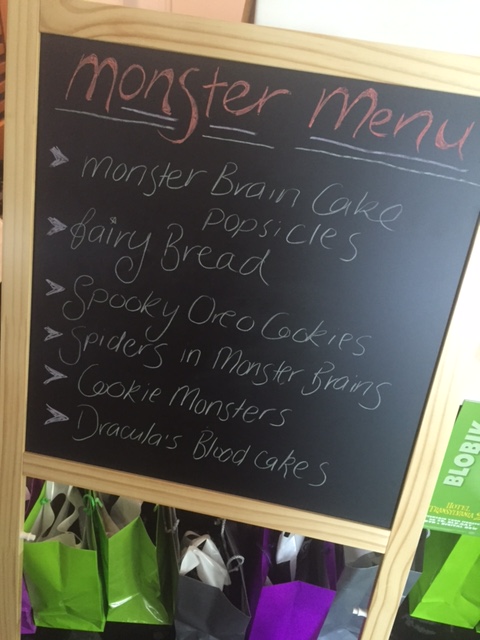 Monster Menu
Monster Brain Cake
Popsicles
Fairy Bread
Spooky Oreo Cookies
Spiders in Monster Brains
Cookie Monsters
Dracula's Blood cakes
BLOBIK
HOTEL
TRANSYLVANIA